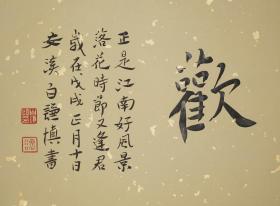 歡
正是江南好風景
落花時節又逢君
歲在戊戌正月十日
安溪白謙慎書